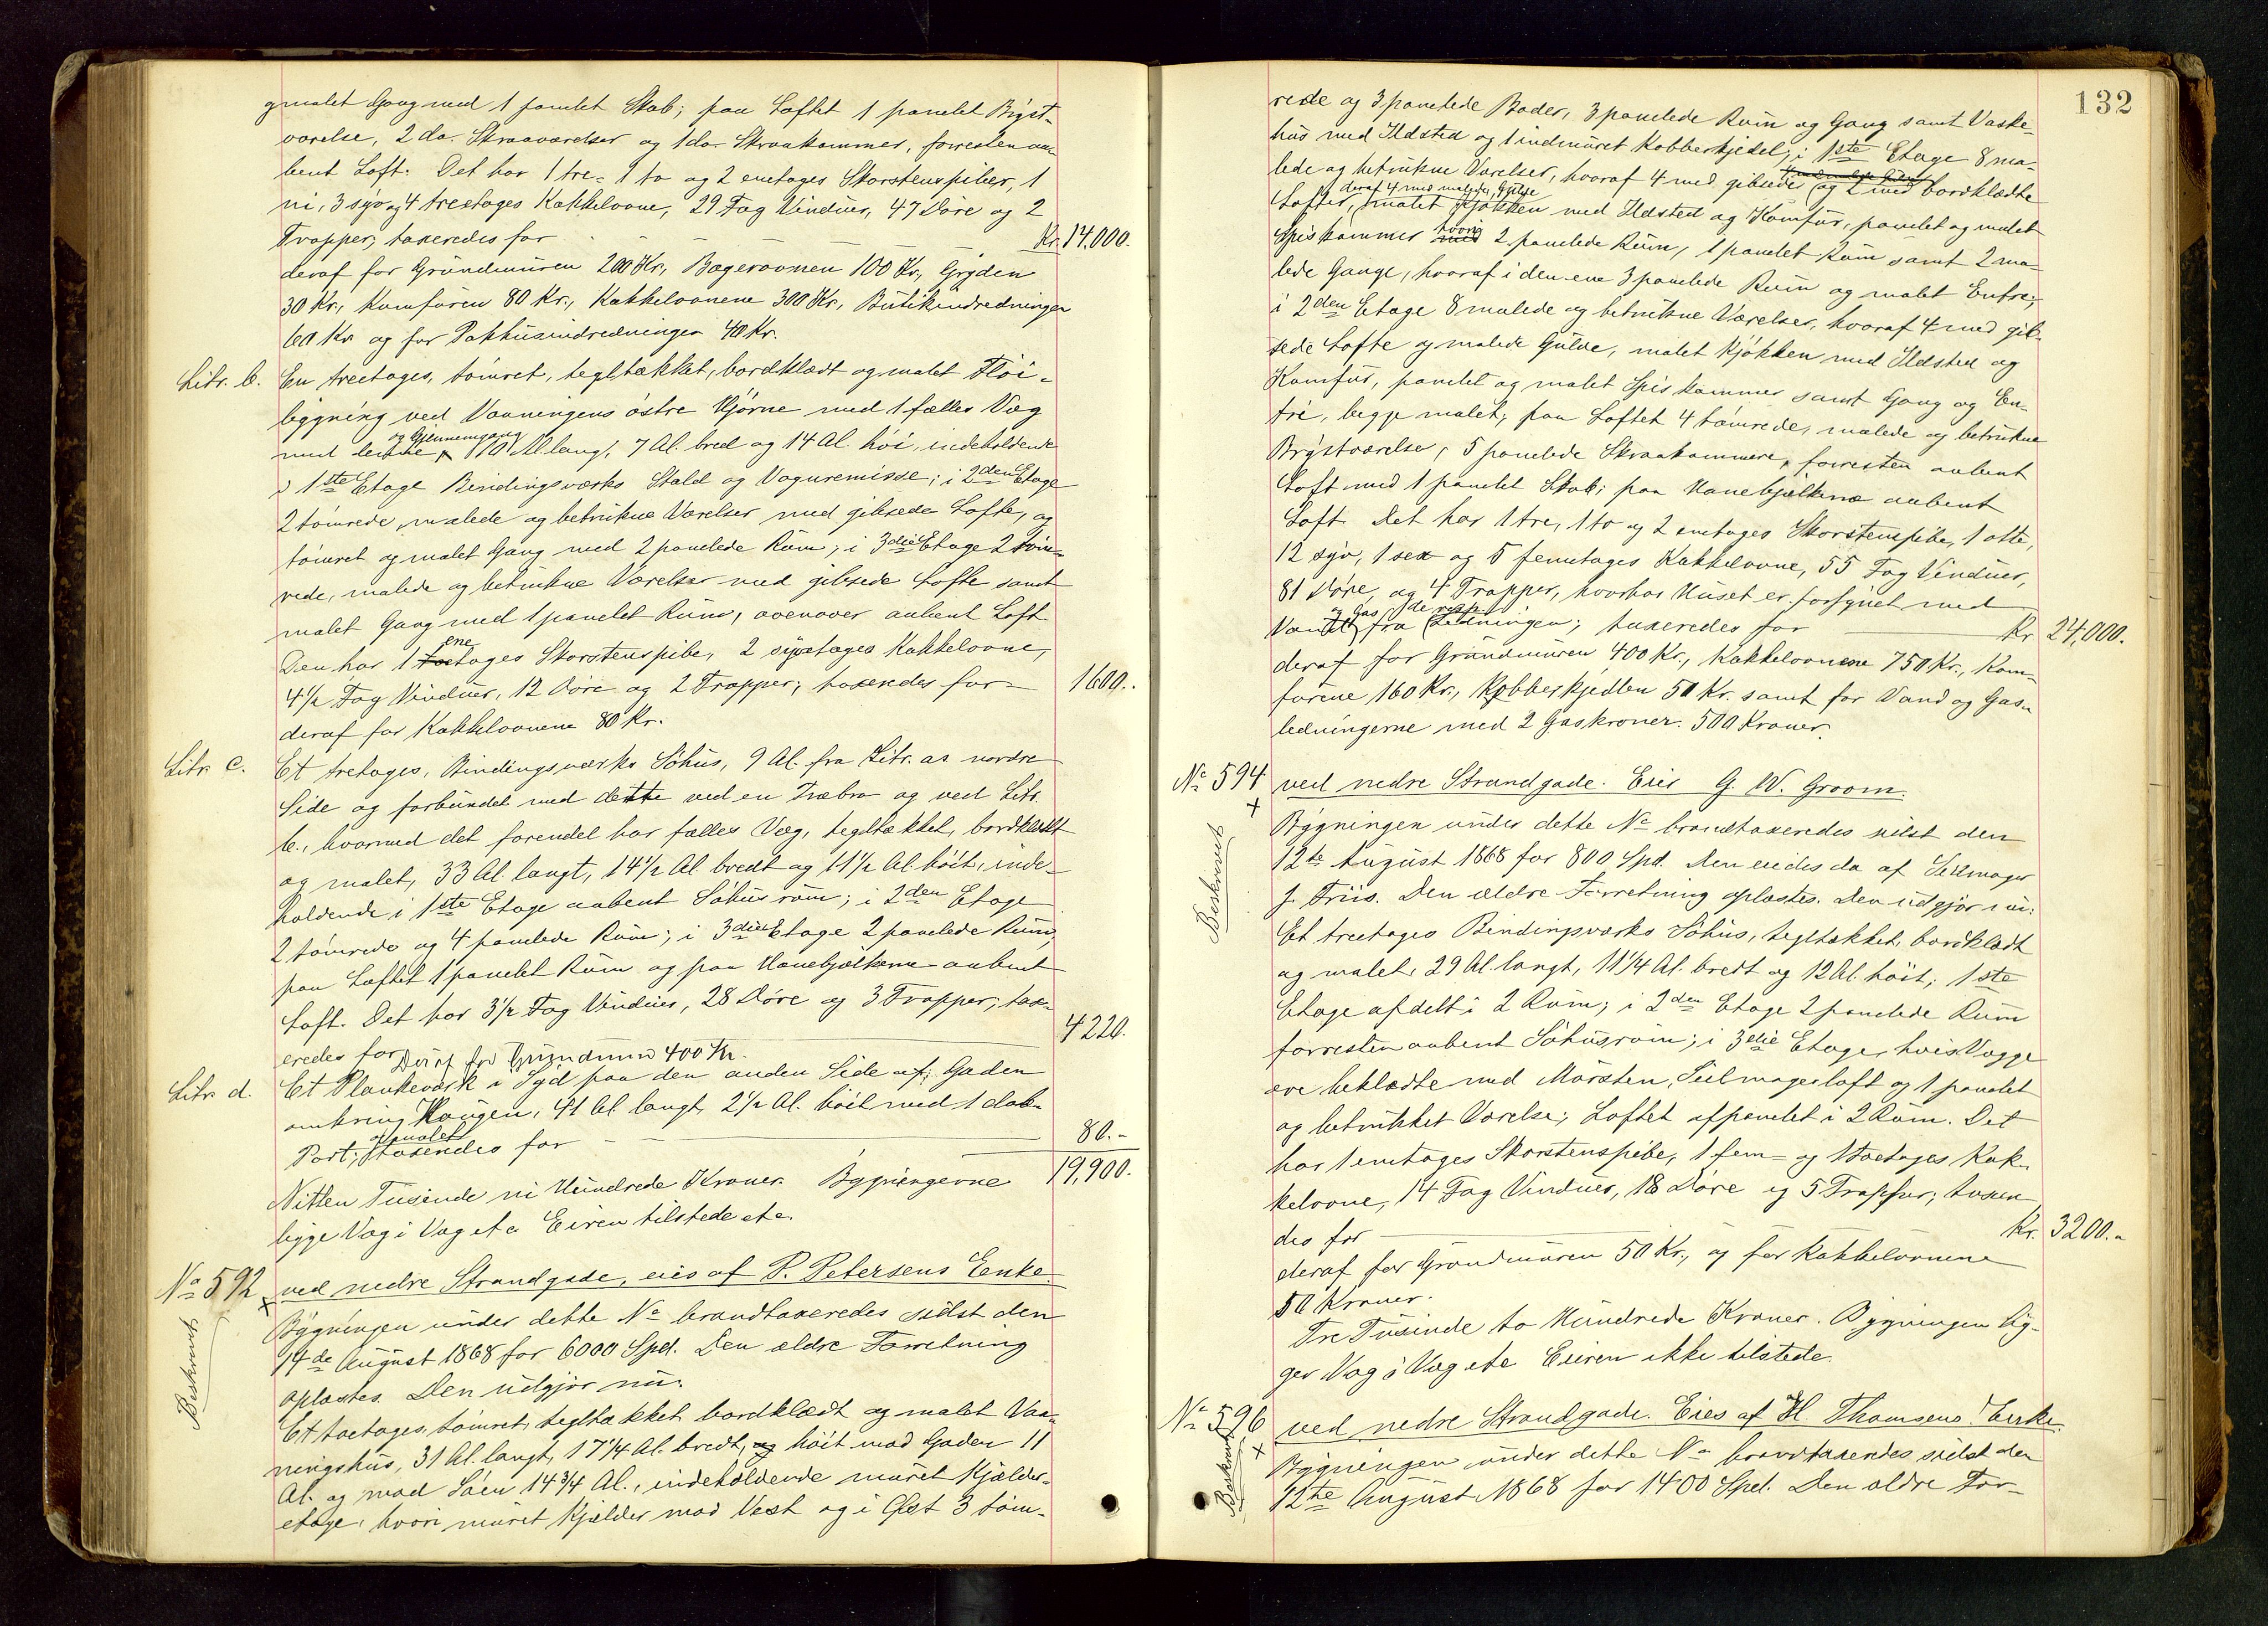 gmalet Gang med 1 panelet Skab; paa Loftet 1 panelet Bryst-
værelse, 2 do. Skraaværelser og 1 do. Skraakammer, forresten aa-
bent Loft. Det har 1 tre- 1 to og 2 enetages Skorstenspiber, 1
ni, 3 syv og 4 treetages Kakkelovne, 29 Fag Vinduer, 47 Døre og 2
Trapper; taxeredes for Kr. 14,000.
deraf for Grundmuren 200 Kr., Bagerovnen 100 Kr., Gryden
30 Kr., Komfuren 80 Kr., Kakkelovnene 300 Kr., Butikindredningen
60 Kr. og for Pakhusindredningen 40 Kr.
Litr. b. En treetages, tømret, tegltækket, bordklædt og malet Fløi-
bygning ved Vaaningens østre Hjørne med 1 fælles Væg
og Gjennemgang
med denne, 10 Al. lang, 7 Al. bred og 14 Al. høi, indeholdende
i 1ste Etage Bindingsværks Stald og Vognremisse; i 2den Etage
2 tømrede, malede og betrukne Værelser med gibsede Lofte, og
tømret og malet Gang med 2 panelede Rum; i 3die Etage 2 tøm-
rede, malede og betrukne Værelser med gibsede Lofte samt
malet Gang med 1 panelet Rum, ovenover aabent Loft.
ene
Den har 1 toetages Skorstenspibe, 2 syvetages Kakkelovne,
4½ Fag Vinduer, 12 Døre og 2 Trapper; taxeredes for 1600..
deraf for Kakkelovnene 80 Kr.
Litr. c. Et tretages, Bindingsværks Søhus, 9 Al. fra Litr. as nordre
Side og forbundet med dette ved en Træbro og ved Litr.
b., hvormed det forendel har fælles Væg, tegltækket, bordklædt
og malet, 33 Al. langt, 14½ Al. bredt og 11½ Al. høit, inde-
holdende i 1ste Etage aabent Søhusrum; i 2den Etage
2 tømrede og 4 panelede Rum; i 3die Etage 2 panelede Rum,
paa Loftet 1 panelet Rum og paa Hanebjælkerne aabent
Loft. Det har 3½ Fag Vinduer, 28 Døre og 3 Trapper; tax-
eredes for 4220.
Deraf for Grundmur 400 Kr.
Litr. d. Et Plankeværk i Syd paa den anden Side af Gaden
omkring Haugen, 41 Al. langt, 2½ Al. høit med 1 dob.
og malet
Port; taxeredes for 80.-
19,900.
Nitten Tusinde ni Hundrede Kroner. Bygningerne
ligge Væg i Væg etc. Eieren tilstede etc.
No 592 ved nedre Strandgade, eies af P. Petersens Enke.
Beskrevet
Bygningen under dette No brandtaxeredes sidst den
14de August 1868 for 6000 Spd. Den ældre Forretning
oplæstes. Den udgjør nu:
Et toetages, tømret, tegltækket, bordklædt og malet Vaa-
ningshus, 31 Al. langt, 17¼ Al. bredt, og høit mod Gaden 11
Al. og mod Søen 14¾ Al., indeholdende muret Kjælder-
etage, hvori muret Kjælder mod Vest og i Øst 3 tøm-
132
rede og 3 panelede Boder, 3 panelede Rum og Gang samt Vaske-
hus med Ildsted og 1 indmuret Kobberkjedel; i 1ste Etage 8 ma-
lede og betrukne Værelser, hvoraf 4 med gibsede og 2 med bordklædte
deraf 4 med malede Gulve
Lofter, malet Kjøkken med Ildsted og Komfur, panelet og malet
hvori
Spiskammer med 2 panelede Rum, 1 panelet Rum samt 2 ma-
lede Gange, hvoraf i den ene 3 panelede Rum og malet Entre;
i 2den Etage 8 malede og betrukne Værelser, hvoraf 4 med gib-
sede Lofte og malede Gulve, malet Kjøkken med Ildsted og
Komfur, panelet og malet Spiskammer samt Gang og En-
tre, begge malet; paa Loftet 4 tømrede, malede og betrukne
Brystværelse, 5 panelede Skraakammere, forresten aabent
Loft med 1 panelet Skab; paa Hanebjælkerne aabent
Loft. Det har 1 tre, 1 to og 2 enetages Skorstenspibe, 1 otte,
12 syv, 1 sex og 5 femetages Kakkelovne, 55 Fag Vinduer,
81 Døre, og 4 Trapper, hvorhos Huset er forsynet med
og Gas de resp.
Vand fra Ledningen; taxeredes for Kr 24,000.
deraf for Grundmuren 400 Kr., Kakkelovnene 750 Kr., Kom-
furene 160 Kr., Kobberkjedlen 50 Kr. samt for Vand og Gas-
ledningerne med 2 Gaskroner. 500 Kroner.
No 594 ved nedre Strandgade. Eier G. W. Groom.
Beskrevet
Bygningen under dette No brandtaxeredes sidst den
12te August 1868 for 800 Spd. Den eiedes da af Seilmager
J. Friis. Den ældre Forretning oplæstes. Den udgjør nu:
Et treetages Bindingsværks Søhus, tegltækket, bordklædt
og malet, 29 Al. langt, 11¼ Al. bredt og 12 Al. høit; 1ste
Etage afdelt i 2 Rum; i 2den Etage 2 panelede Rum
forresten aabent Søhusrum; i 3die Etage, hvis Vægge
ere beklædte med Mursten, Seilmagerloft og 1 panelet
og betrukket Værelse; Loftet afpanelet i 2 Rum. Det
har 1 enetages Skorstenspibe, 1 fem- og 1 toetages Kak-
kelovne, 14 Fag Vinduer, 18 Døre og 5 Trapper; taxere-
des for Kr. 3200.-
deraf for Grundmuren 50 Kr., og for Kakkelovnene
50 Kroner.
Tre Tusinde to Hundrede Kroner. Bygningen lig-
ger Væg i Væg etc. Eieren ikke tilstede.
No 596 ved nedre Strandgade. Eies af H. Thomsens Enke.
Beskrevet
Bygningen under dette No brandtaxeredes sidst den
12te August 1868 for 1400 Spd. Den ældre For-